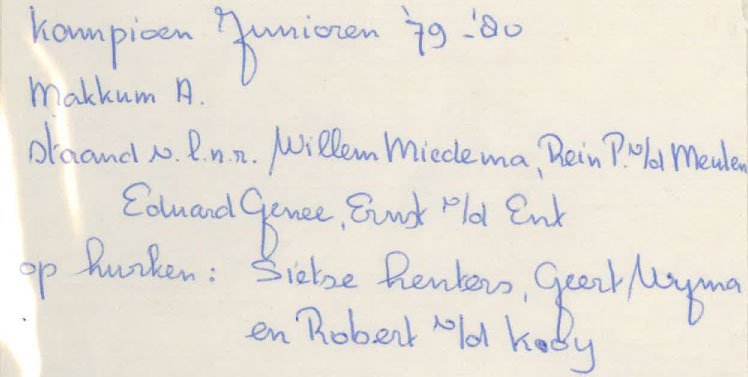 Kampioen Junioren '79-'80
Makkum A.
Staand v.l.n.r. Willem Miedema, Rein P. v/d Meulen
Eduard Genee, Ernst v/d Ent
op hurken: Sietse Lenters, Geert Wyma
en Robert v/d Kooy